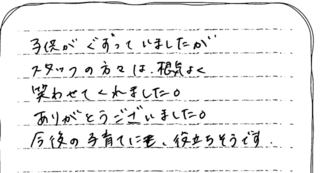 子供がぐずっていましたが
スタッフの方々は、根気よく
笑わせてくれました。
ありがとうございました。
今後の子育てにも、役立ちそうです.